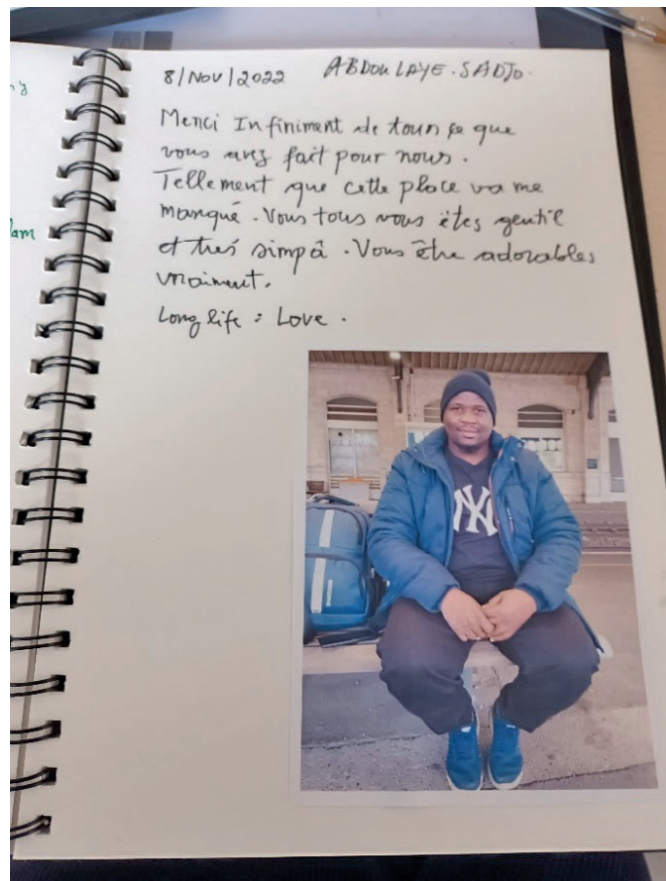 8/Nov/2022 ABDOULAYE.SADJO.
Merci Infiniment de tous ce que
vous avez fait pour nous.
Tellement que cette place va me
manqué. Vous tous vous êtes gentil
et très simpâ. Vous être adorables
vraiment.
Long life : Love.
lam
NY